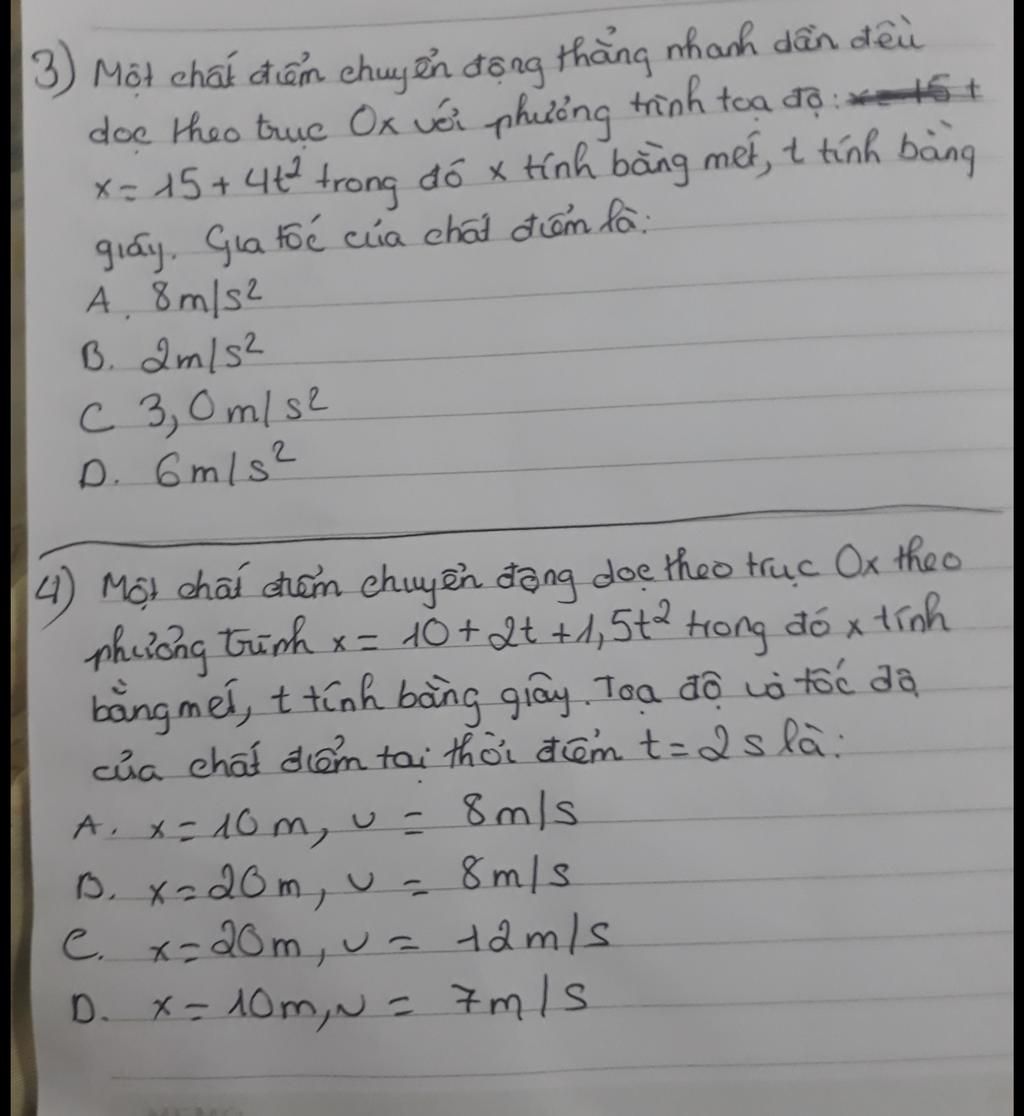 3) Một chất điểm chuyển động thẳng nhanh dần đều
dọc theo trục Ox với phương trình toạ độ: x = 15 +
x = 15 + 4t² trong đó x tính bằng mét, t tính bằng
giây. Gia tốc của chất điểm là:
A. 8m/s²
B. 2m/s²
C 3,0m/s²
D. 6m/s²
4) Một chất điểm chuyển động dọc theo trục Ox theo
phương trình x = 10 + 2t + 1,5t² trong đó x tính
bằng mét, t tính bằng giây. Toạ độ và tốc độ
của chất điểm tại thời điểm t = 2s là:
A. x = 10m, v = 8m/s
B. x = 20m, v = 8m/s
C. x = 20m, v = 12m/s
D. x = 10m, v = 7m/s